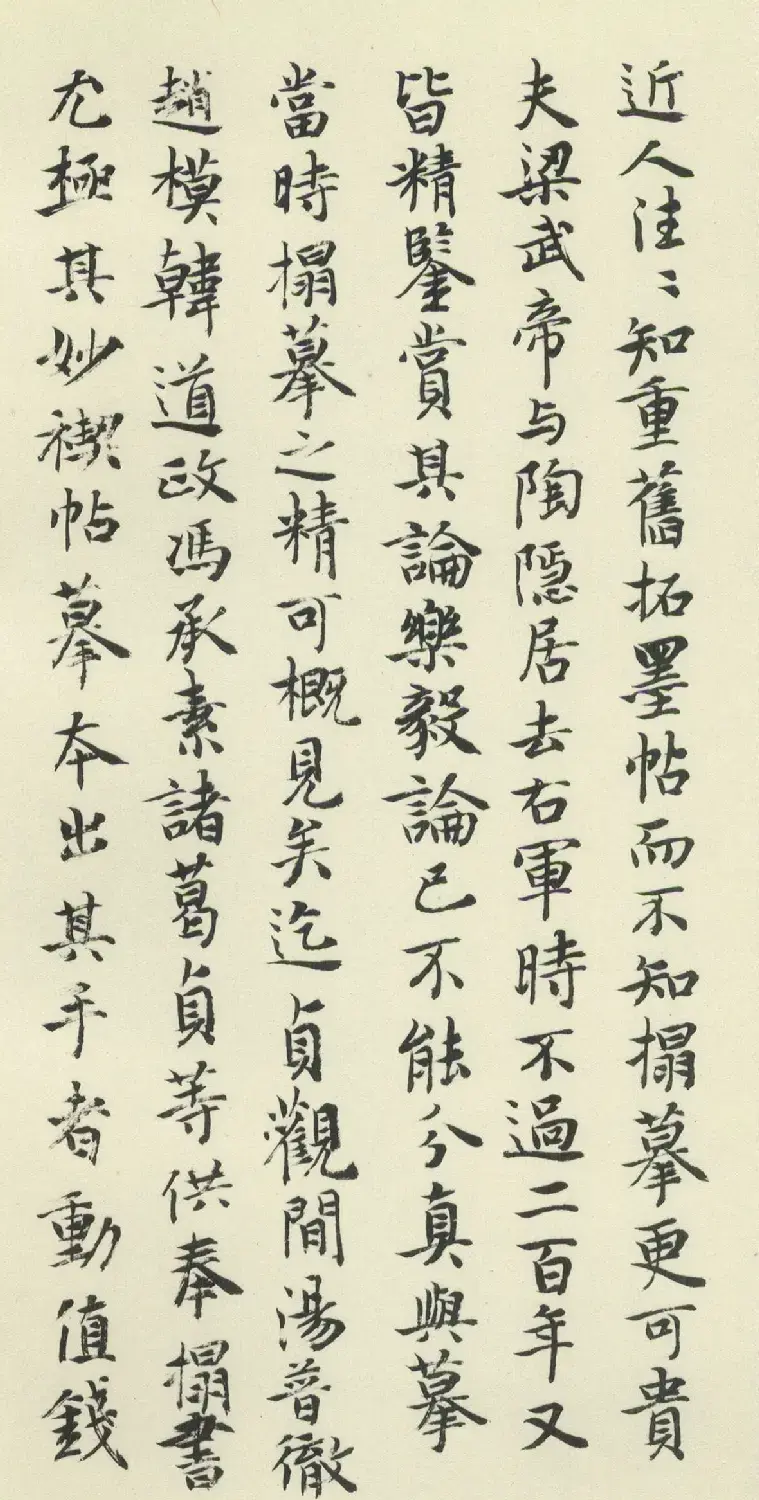 近人往〻知重舊拓墨帖而不知搨摹更可貴
夫梁武帝与陶隱居去右軍時不過二百年又
皆精鑒賞其論樂毅論已不能分真與摹
當時搨摹之精可概見矣迄貞觀間湯普徹
趙模韓道政馮承素諸葛貞等供奉搨書
尤極其妙禊帖摹本出其手者動值錢